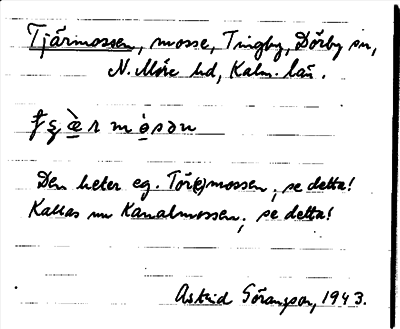 Tjärmossen, mosse, Tingby, Dörby sn,
N. Möre hd, Kalm. län.
Den heter eg. Tör(e)mossen, se detta!
Kallas nu Kanalmossen, se detta!
Astrid Göransson, 1943.